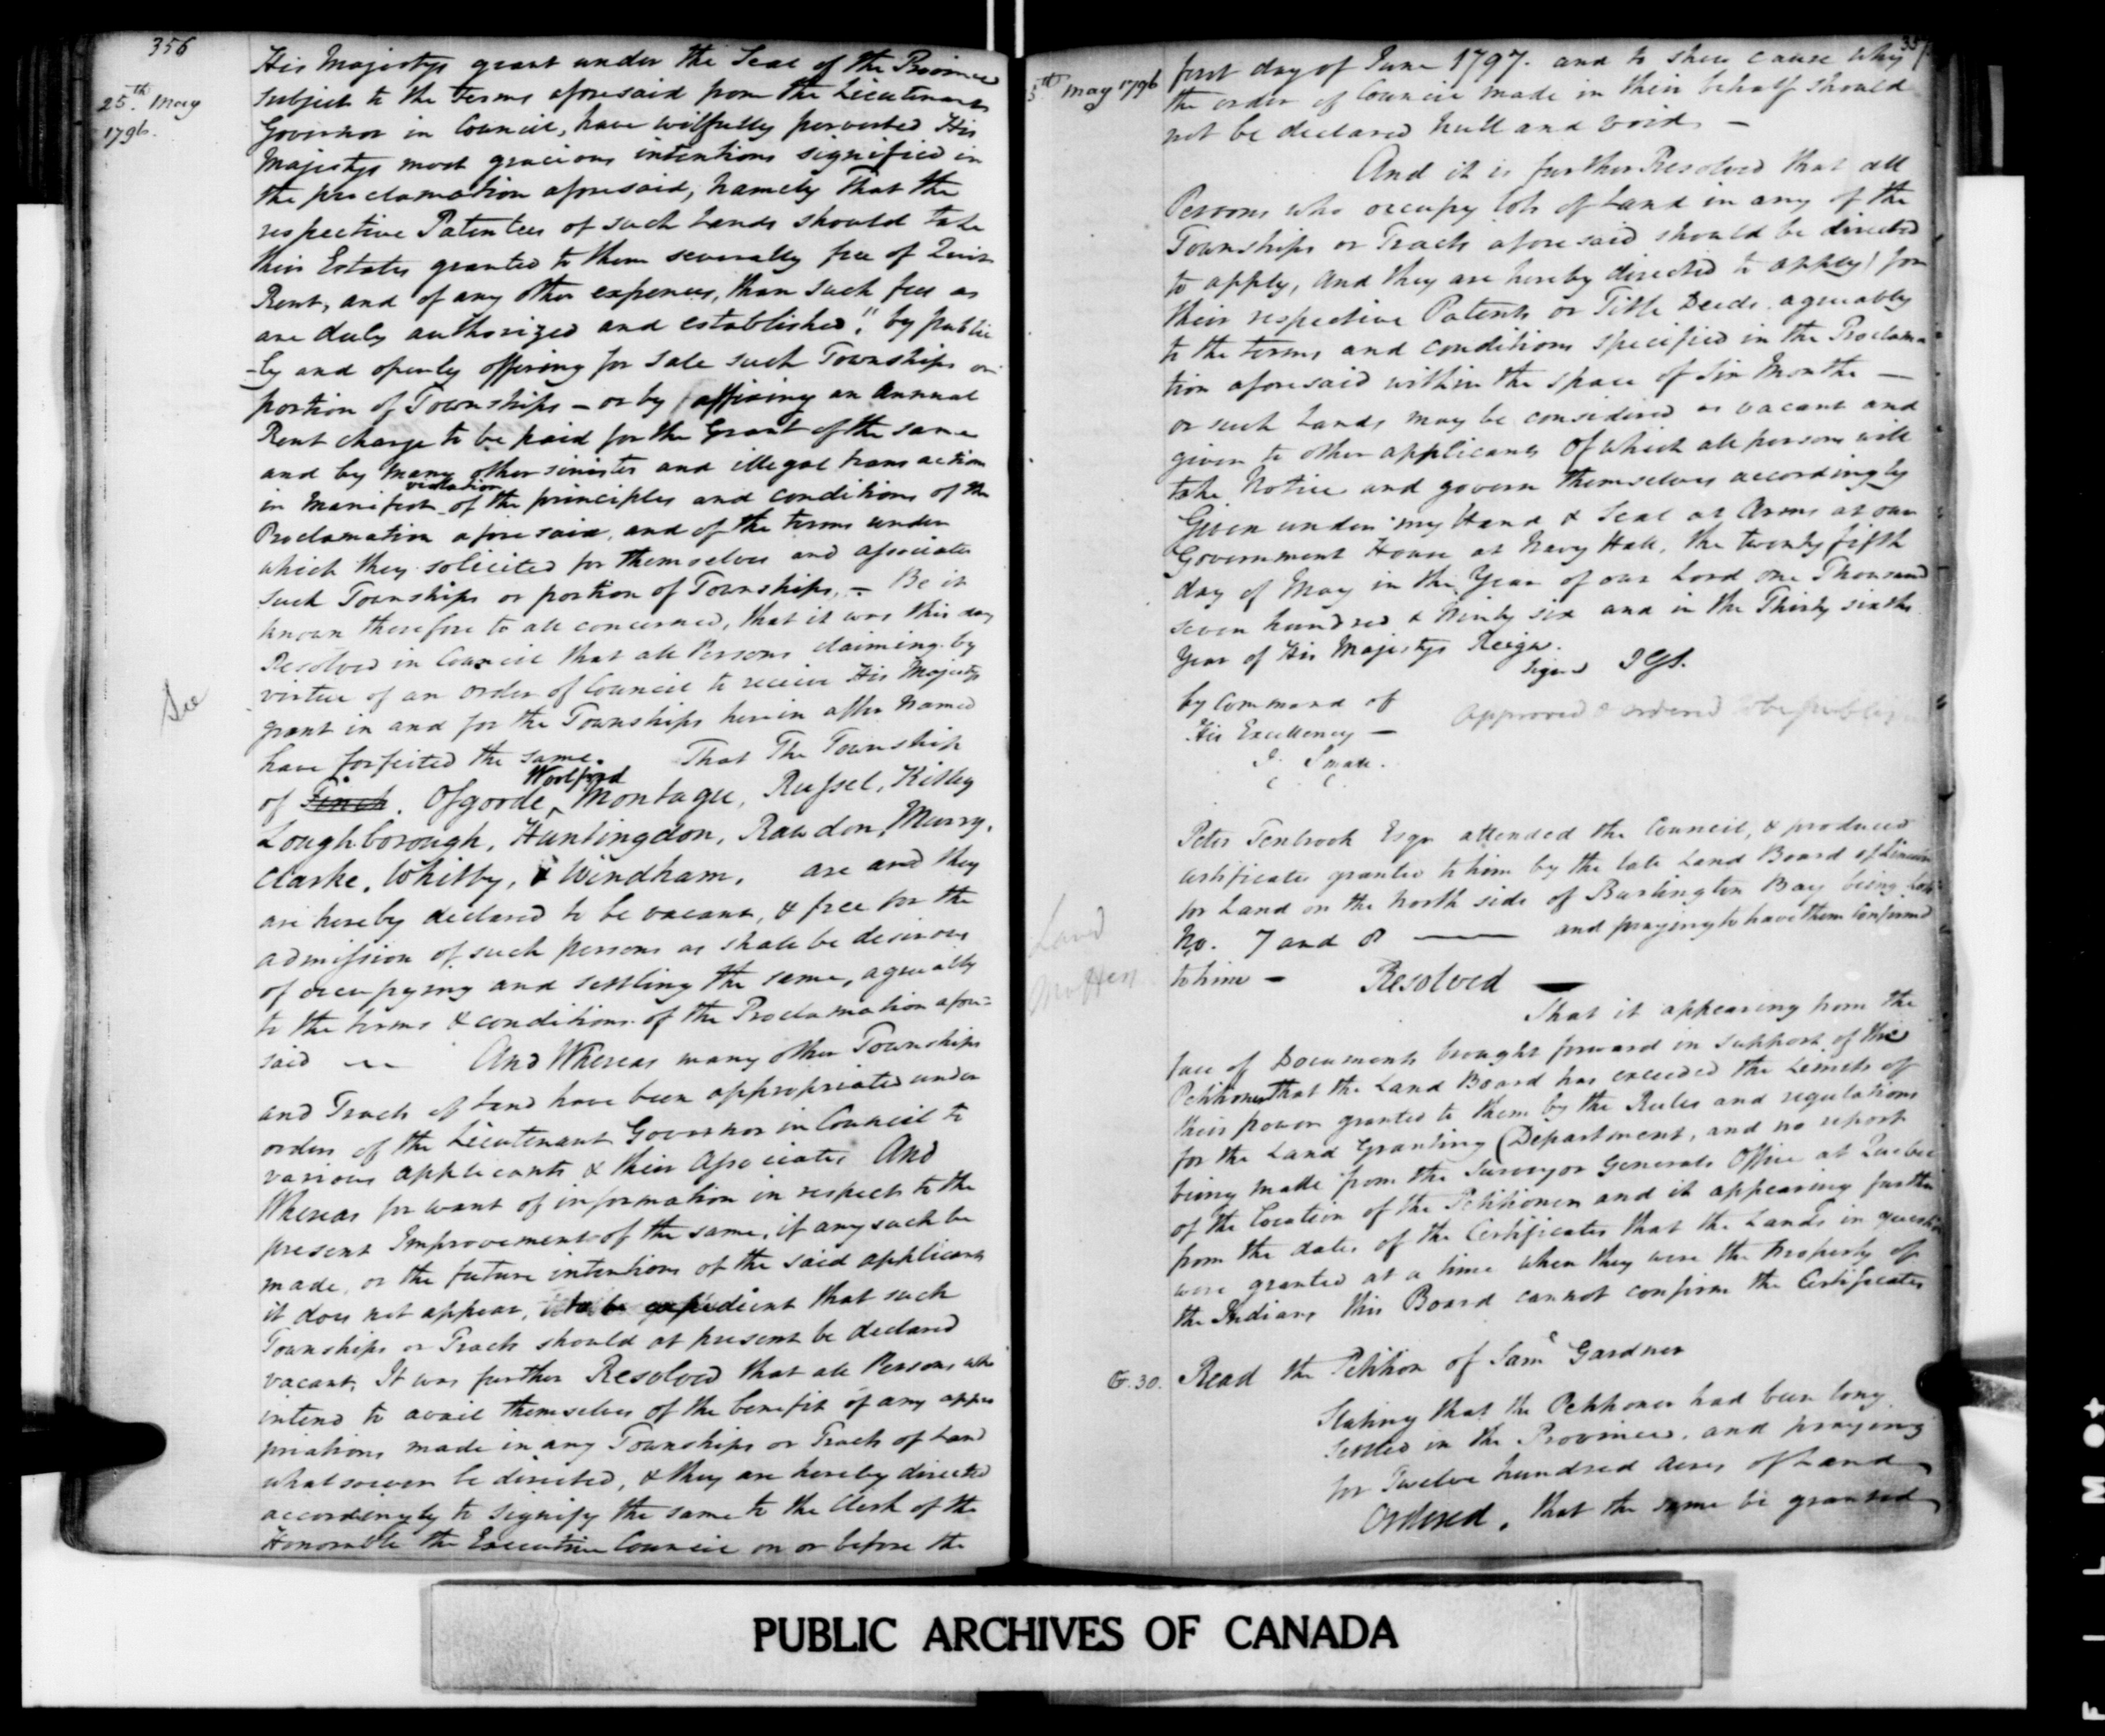 356
25th May
1796.
His Majestys grant under the Seal of the Province
subject to the Terms aforesaid from the Lieutenant
Governor in Council, have wilfully perverted His
Majestys most gracious intentions signified in
the proclamation aforesaid, namely That the
respective Patentees of such Lands should take
their Estates granted to them severally free of Quit
Rent, and of any other expences, than such fees as
are duly authorized and established," by public
-ly and openly offering for sale such Townships or
portion of Townships - or by affixing an Annual
Rent charge to be paid for the Grant of the same
and by many other sinister and illegal transactions
violation
in Manifest of the principles and conditions of the
Proclamation aforesaid, and of the terms under
which they solicited for themselves and associates
such Townships or portion of Townships, - Be it
known therefore to all concerned, that it was this day
Resolved in Council that all Persons claiming by
virtue of an order of Council to receive His Majestys
See
grant in and for the Townships herein after Named
have forfeited the same. That The Township
Woolford
of Finch. Osgoode, Montague, Russel, Kitley
Loughborough, Huntingdon, Rawdon, Murry,
Clarke, Whitby, & Windham, are and they
are hereby declared to be vacant, & free for the
admission of such persons as shall be desirous
of occupying and settling the same, agreeably
to the terms & conditions of the Proclamation afore=
said -- And Whereas many other Townships
and Tracts of Land have been appropriated under
orders of the Lieutenant Governor in Council to
various applicants & their Associates And
Whereas for want of information in respect to the
present Improvement of the same, if any such be
made, or the future intentions of the said applicants
it does not appear, to be expedient that such
Townships or Tracts should at present be declared
vacant, It was further Resolved that all Persons who
intend to avail themselves of the benefit of any appro
priations made in any Townships or Tracts of Land
whatsoever be directed, & they are hereby directed
accordingly to signify the same to the Clerk of the
Honorable the Executive Council on or before the
357
5th May 1796
first day of June 1797. and to shew cause why
the order of Council made in their behalf should
not be declared Null and void -
And it is further Resolved that all
Persons who occupy lots of Land in any of the
Townships or Tracts aforesaid should be directed
to apply, and they are hereby directed to apply for
their respective Patents or Title Deeds agreeably
to the terms and conditions specified in the Proclama
tion aforesaid within the space of Six Months -
or such Lands may be considered as vacant and
given to other applicants Of which all persons will
take Notice and govern themselves accordingly
Given under my Hand & Seal at Arms at our
Government House at Navy Hall, the twenty fifth
day of May in the Year of our Lord one Thousand
seven hundred & Ninty six and in the Thirty sixth
Year of His Majestys Reign.
Signed JGS.
by Command of
His Excellency -
Approved & ordered to be publis
J. Small.
Peter Tenbrook Esqr attended the Council, & produced
certificates granted to him by the late Land Board of Lincoln
for Land on the North side of Burlington Bay being Lots
No. 7 and 8 — and praying to have them Confirmed
to him -
Land
Matters
Resolved -
That it appearing from the
face of Documents brought forward in support of the
Petitioner that the Land Board has exceeded the Limits of
their power granted to them by the Rules and regulations
for the Land Granting Department, and no report
being made from the Surveyor Generals Office at Quebec
of the location of the Petitioner and it appearing further
from the dates of the Certificates that the Lands in question
were granted at a time when they were the Property of
the Indians this Board cannot confirm the Certificates
G.30. Read the Petition of Saml Gardner
Stating that the Petitioner had been long
settled in the Province, and praying
for Twelve hundred Acres of Land
Ordered, that the same be granted
PUBLIC ARCHIVES OF CANADA
FILMOT